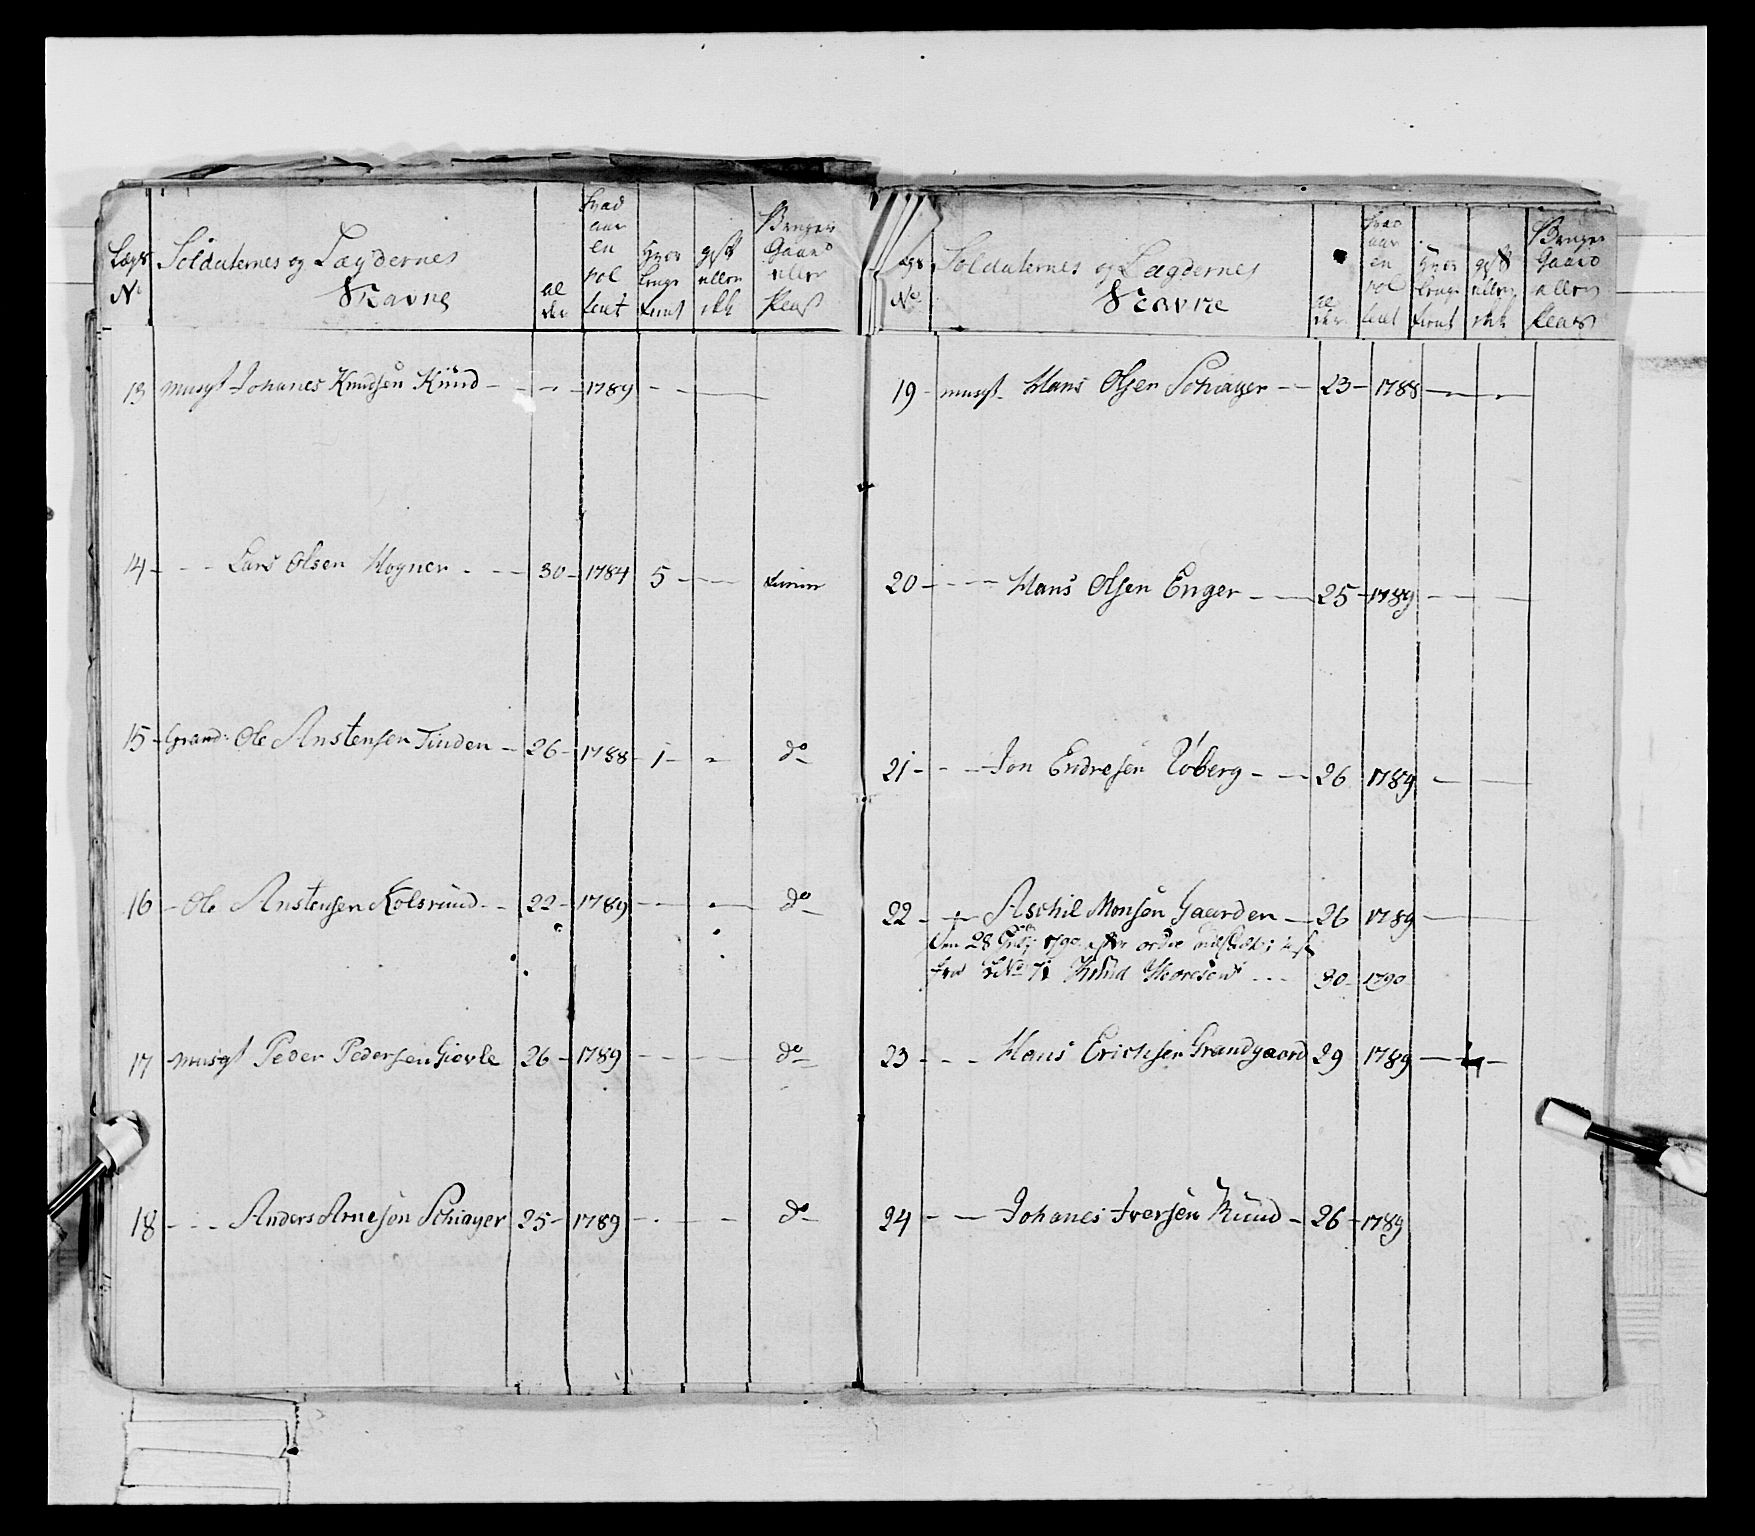 Lægs No Soldaternes og Lægdernes Navne al der hvad aar en rol lert hvor lenge tient gift eller ikk Bruger Gaard eller Plads
13 musqt Johanes Knudsen Kind - - - 1789 - - -
14 - - - Lars Olsen Hogner - - - 30 - 1784 5 - - -
15 - Grand: Ole Anstensen Tinden - 26 - 1788 - 1 - - do
16 - Ole Anstensen Kolsrüud - - 22 - 1789 - - - do
17 - musqt Peder Pedersen Gievle 26 - 1789 - - - do
18 - - - Anders Arnesøn Schiager 25 - 1789 - - - do
Lægs No. Soldaternes og Lægdernes Navne al der hvad aar en rol lert hvor lenge tient gift eller ikk Bruger Gaard eller Plads
19 - musqt. Hans Olsen Schiager - - 23 - 1788 - - -
20 - - - - Hans Olsen Enger - - - 25 - 1789 - - -
21 - - - Jon Endresen Röberg - - - 26 1789 - -
22 - - Aschil Monsøn Gaarden - 26 1789 - -
Den 28 1790 efter ordre
fra No 71 Knud Thoresøn - - - 30 - 1790
23 - - - Hans Erichsen Grandgaard 29 1789 - - -
24 - - Johanes Iversen Ruud - 26 - 1789